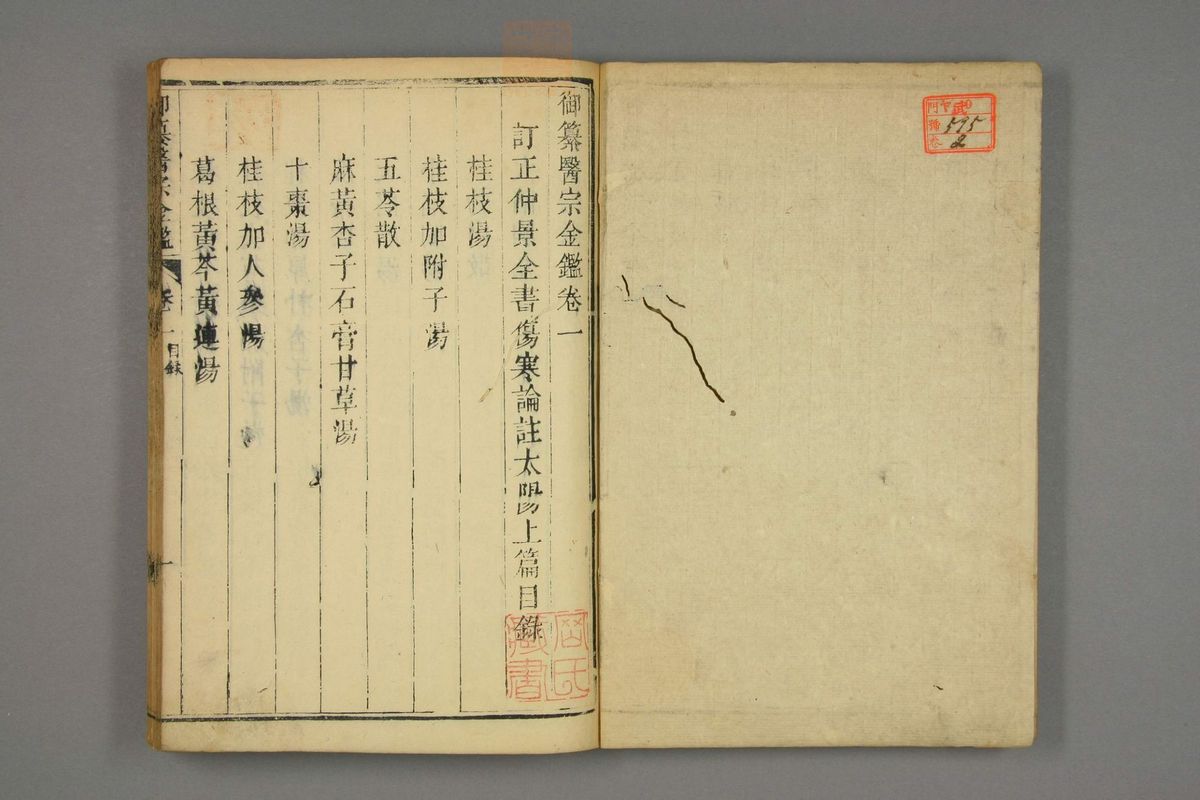 御纂醫宗金鑑卷一
訂正仲景全書傷寒論註太陽上篇目錄
桂枝湯
桂枝加附子湯
五苓散
麻黃杏子石膏甘草湯
十棗湯
桂枝加人參湯
葛根黃芩黃連湯
御纂醫宗金鑑 卷一 目錄 一
門
武
號 595
卷 2
氏
藏書